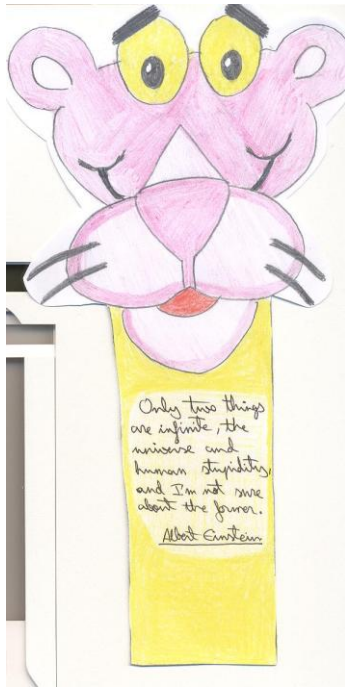 Only two things
are infinite, the
universe and
human stupidity,
and I'm not sure
about the former.
Albert Einstein